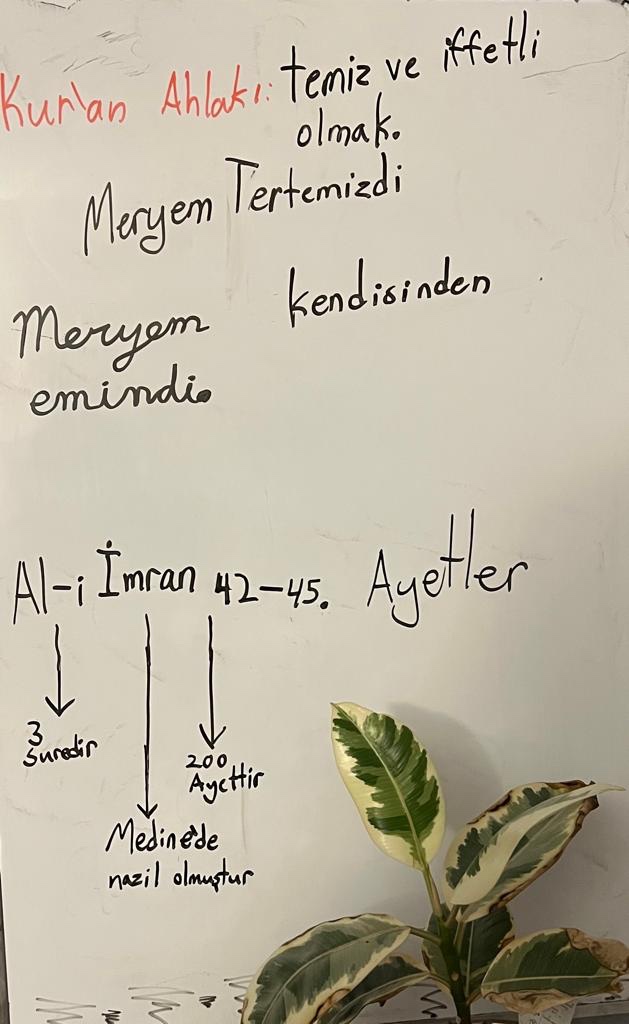 Kur'an Ahlakı: temiz ve iffetli
olmak.
Meryem Tertemizdi
Meryem kendisinden
emindi.
Al-i İmran 42-45. Ayetler
3
Suredir
200
Ayettir
Medine'de
nazil olmuştur